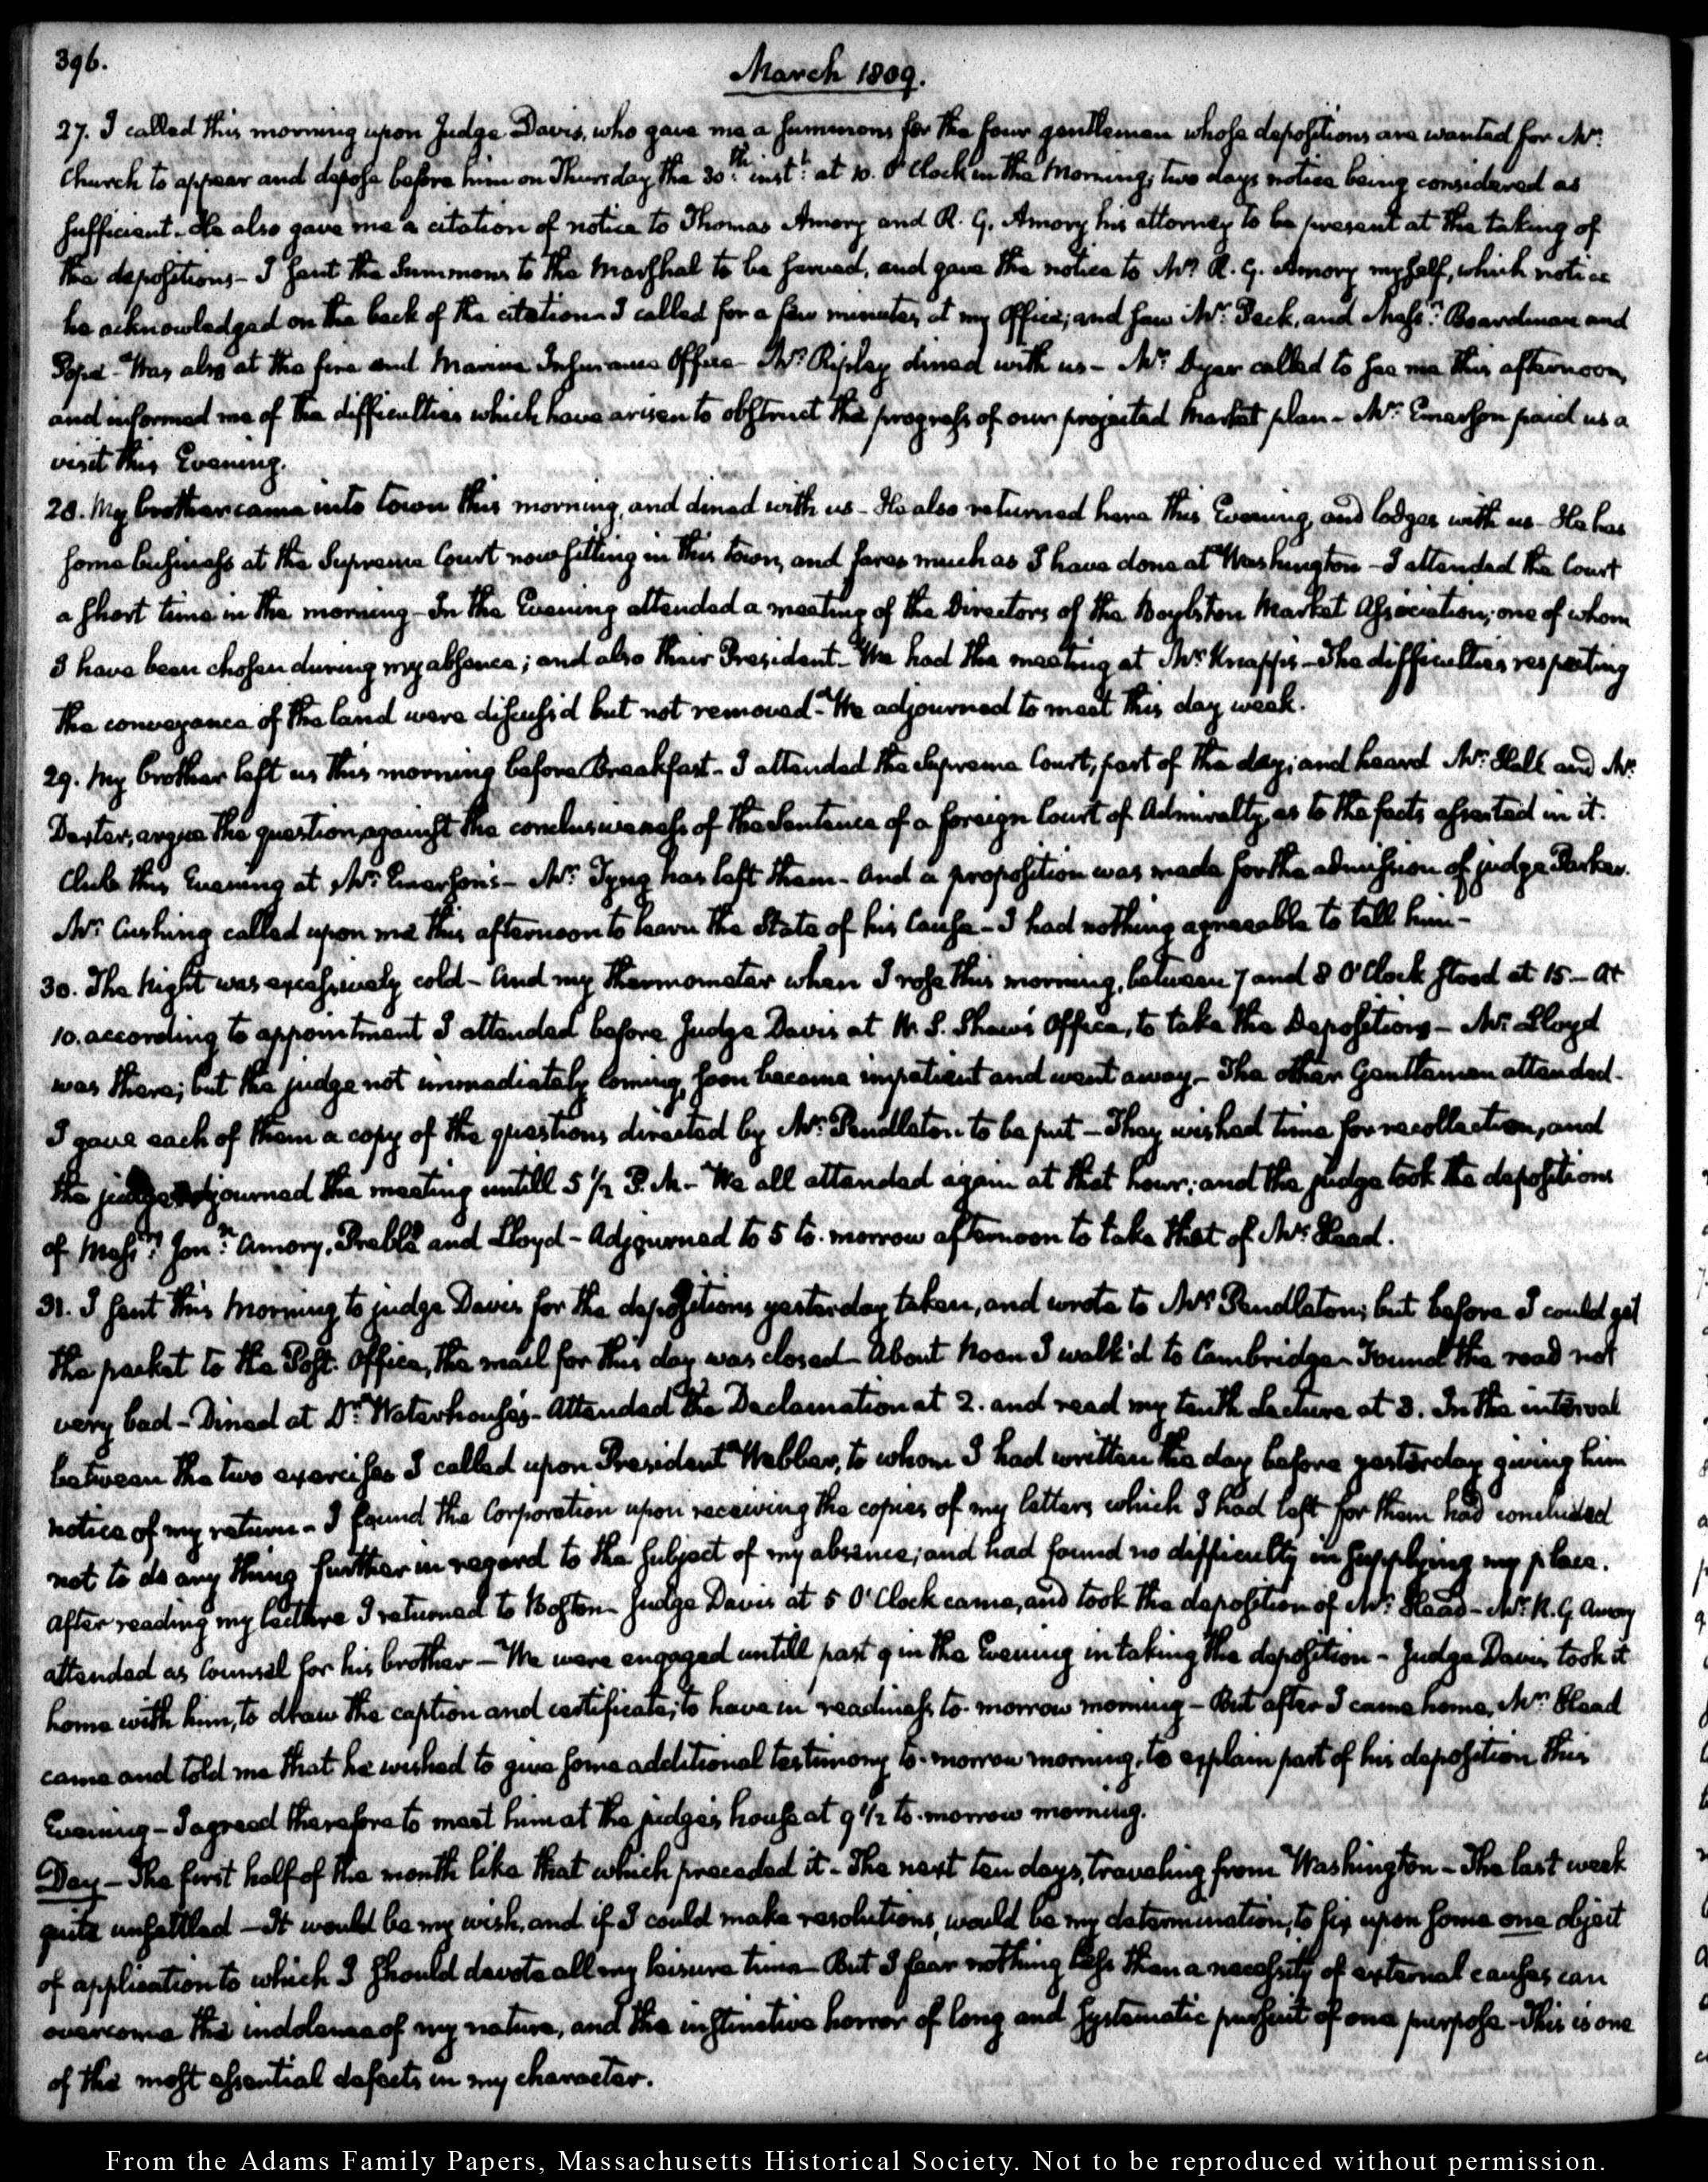 396.
March 1809.
27. I called this morning upon Judge Davis, who gave me a summons for the four gentlemen whose depositions are wanted for Mr:
Church to appear and depose before him on Thursday the 30th: instt: at 10. O'Clock in the Morning; two days notice being considered as
sufficient. He also gave me a citation of notice to Thomas Amory and R. G. Amory his attorney to be present at the taking of
the depositions- I sent the Summons to the Marshal to be served, and gave the notice to Mr: R. G. Amory myself, which notice
he acknowledged on the back of the citation- I called for a few minutes, at my Office; and saw Mr: Peck, and Messrs: Boardman and
Pope- Was also at the fire and Marine Insurance Office- Mr: Ripley dined with us- Mr: Dyer called to see me this afternoon,
and informed me of the difficulties which have arisen to obstruct the progress of our projected Market plan- Mr: Emerson paid us a
visit this Evening.
28. My brother came into town this morning, and dined with us- He also returned here this Evening, and lodges with us- He has
some business at the Supreme Court now sitting in this town, and fares much as I have done at Washington- I attended the Court
a short time in the morning- In the Evening attended a meeting of the Directors of the Boylston Market Association; one of whom
I have been chosen during my absence; and also their President- We had the meeting at Mr: Knapp's- The difficulties respecting
the conveyance of the land were discuss'd but not removed- We adjourned to meet this day week.
29. My brother left us this morning before Breakfast- I attended the Supreme Court, part of the day; and heard Mr: Hall and Mr:
Dexter, argue the question, against the conclusiveness of the Sentence of a foreign Court of Admiralty, as to the facts asserted in it.
Club this Evening at Mr: Emerson's- Mr: Tyng has left them- And a proposition was made for the admission of judge Parker.
Mr: Cushing called upon me this afternoon to learn the State of his Cause- I had nothing agreeable to tell him-
30. The Night was excessively cold- And my thermometer when I rose this morning, between 7 and 8 O'Clock stood at 15- At
10. according to appointment I attended before Judge Davis at W. S. Shaw's Office, to take the Depositions- Mr: Lloyd
was there; but the judge not immediately coming, soon became impatient and went away- The other Gentlemen attended.
I gave each of them a copy of the questions directed by Mr: Pendleton to be put- They wished time for recollection, and
the judge adjourned the meeting untill 5 1/2 P.M.- We all attended again at that hour; and the judge took the depositions
of Messrs: Jonn: Amory, Preble and Lloyd- Adjourned to 5 to-morrow afternoon to take that of Mr: Head.
31. I sent this Morning to judge Davis for the depositions yesterday taken, and wrote to Mr: Pendleton; but before I could get
the packet to the Post-Office, the mail for this day was closed- About Noon I walk'd to Cambridge- Found the road not
very bad- Dined at Dr: Waterhouse's- Attended the Declamation at 2. and read my tenth Lecture at 3. In the interval
between the two exercises I called upon President Webber, to whom I had written the day before yesterday giving him
notice of my return- I found the Corporation upon receiving the copies of my letters which I had left for them had concluded
not to do any thing further in regard to the subject of my absence; and had found no difficulty in supplying my place.
After reading my lecture I returned to Boston- Judge Davis at 5 O'Clock came, and took the deposition of Mr: Head- Mr: R. G. Amory
attended as Counsel for his brother- We were engaged untill past 9 in the Evening in taking the deposition- Judge Davis took it
home with him, to draw the caption and certificate; to have in readiness to-morrow morning- But after I came home, Mr: Head
came and told me that he wished to give some additional testimony to-morrow morning, to explain part of his deposition this
Evening- I agreed therefore to meet him at the judge's house at 9 1/2 to-morrow morning.
Day- The first half of the month like that which preceded it- The next ten days, traveling from Washington- The last week
quite unsettled- It would be my wish, and if I could make resolutions, would be my determination, to fix upon some one object
of application to which I should devote all my leisure time- But I fear nothing less than a necessity of external causes can
overcome the indolence of my nature, and the instinctive horror of long and systematic pursuit of one purpose- This is one
of the most essential defects in my character.
From the Adams Family Papers, Massachusetts Historical Society. Not to be reproduced without permission.